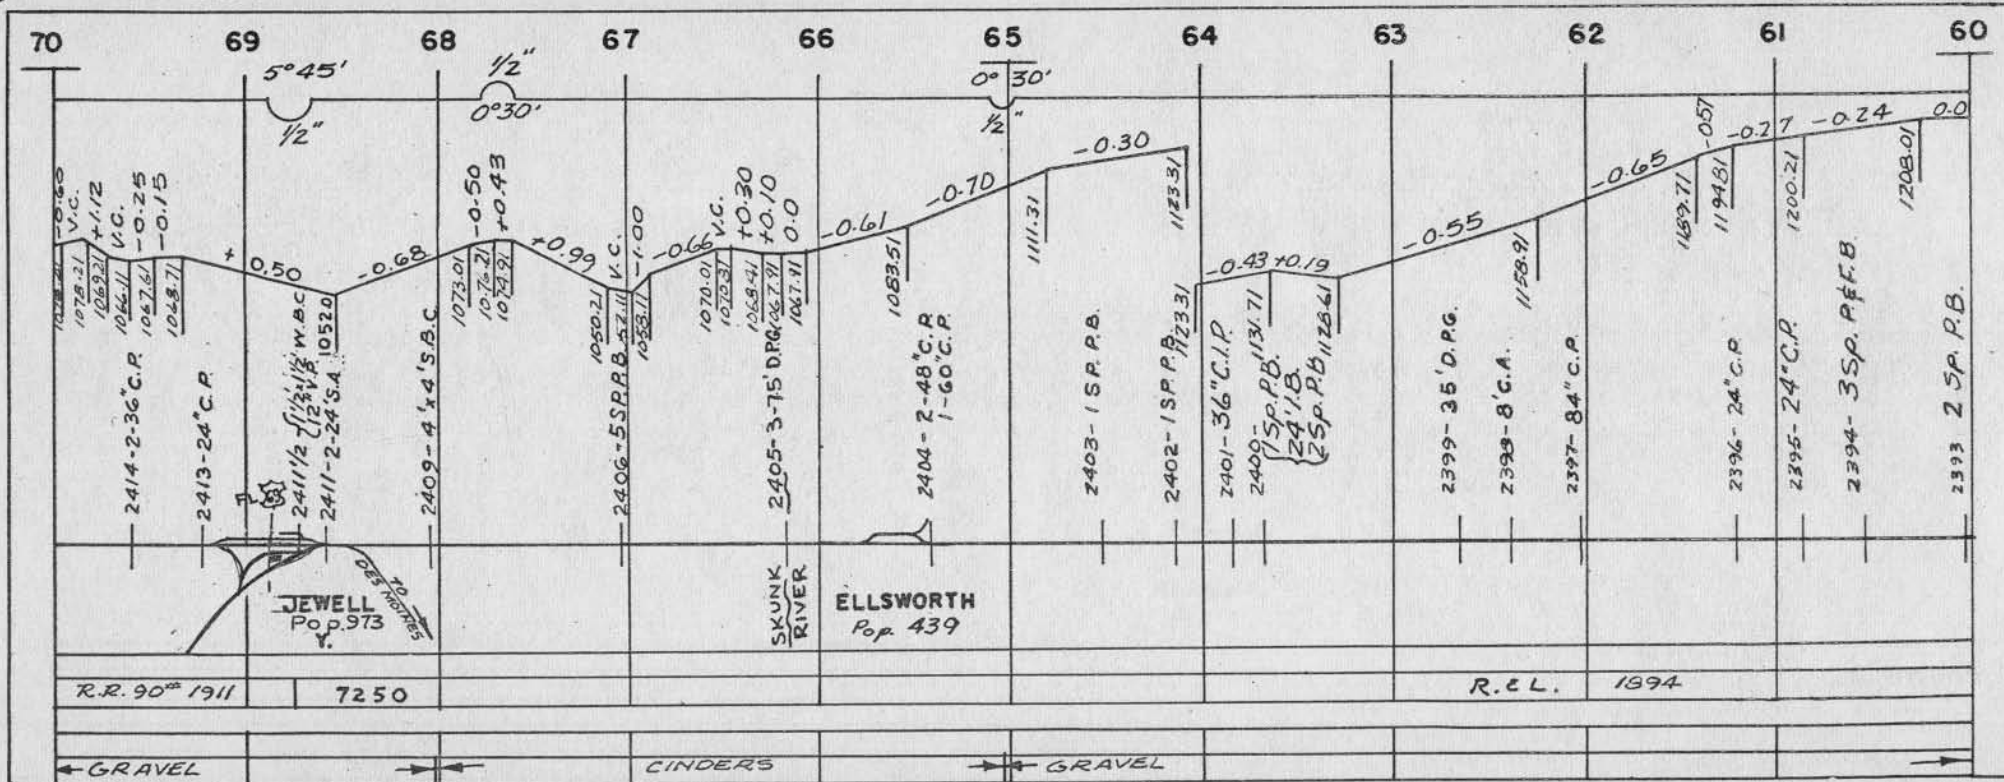 70 69 68 67 66 65 64 63 62 61 60
5°45'
1/2"
1/2"
0°30'
0°30'
1/2"
-0.60
V.C.
+1.12
V.C.
-0.25
-0.15
+0.50
-0.68
-0.50
+0.43
+0.99
V.C.
-1.00
-0.66
V.C.
+0.30
+0.10
0.0
-0.61
-0.70
-0.30
-0.43
+0.19
-0.55
-0.65
-0.57
-0.27
-0.24
0.0
1078.21
1069.21
1066.11
1067.61
1068.71
1052.0
1073.01
1076.21
1074.91
1050.21
1058.11
1070.01
1070.31
1068.41
1067.91
1067.91
1083.51
1111.31
1123.31
1123.31
1131.71
1128.61
1158.91
1189.71
1194.81
1200.21
1208.01
2414-2-36"C.P.
2413-24"C.P.
2411 1/2 {1 1/2'x1 1/2' W.B.C.
{12"V.P.
2411-2-24'S.A.
2409-4'x4'S.B.C.
2406-5SP.P.B.
2405-3-75'D.P.G.
2404-2-48"C.P.
1-60"C.P.
2403-1 SP. P.B.
2402-1 SP. P.B.
2401-36"C.I.P.
2400-
{1SP. P.B.
{24'I.B.
{2SP. P.B.
2399-35' D.P.G.
2398-8'C.A.
2397-84"C.P.
2396-24"C.P.
2395-24"C.P.
2394-3 SP. P.& F.B.
2393 2 SP. P.B.
69
TO
DES MOINES
JEWELL
Pop. 973
Y.
SKUNK
RIVER
ELLSWORTH
Pop. 439
R.R. 90# 1911
7250
R.& L. 1894
GRAVEL
CINDERS
GRAVEL